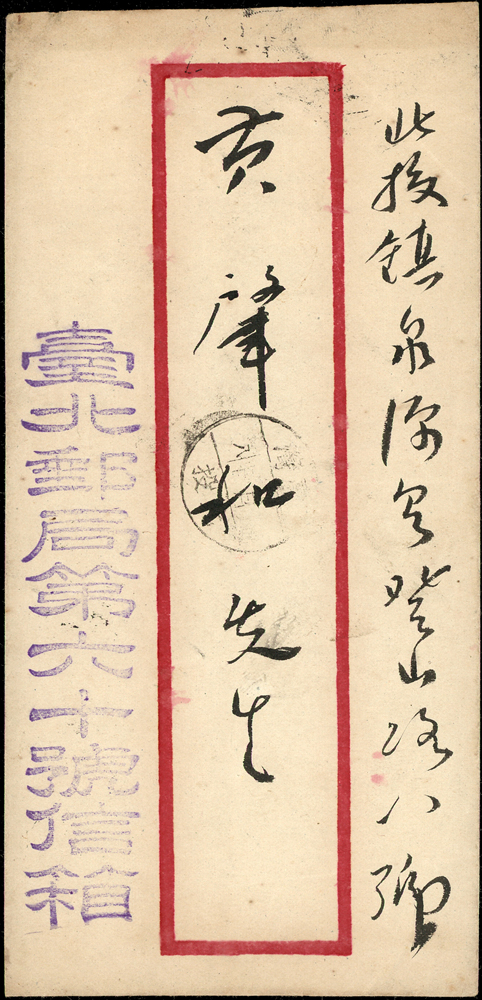 北投鎮泉源里登山路八號
黃肇和先生
臺北郵局第六十號信箱